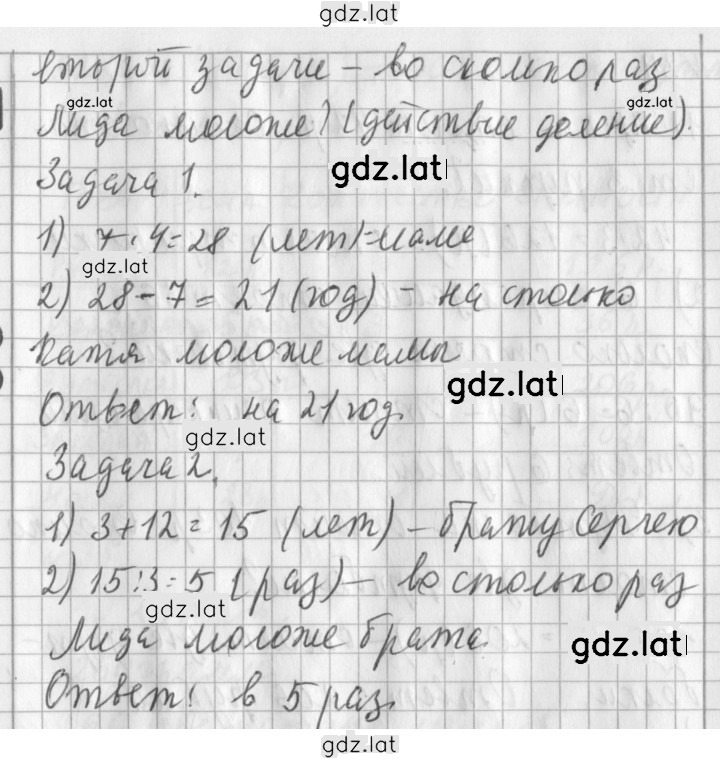 gdz.lat
второй задачи – во сколько раз
gdz.lat gdz.lat
Лида моложе? (действие деление).
gdz.lat
Задача 1.
1) 7·4=28 (лет)=маме
gdz.lat
2) 28-7=21(год) – на столько
Катя моложе мамы
gdz.lat
Ответ: на 21 год.
gdz.lat
Задача 2.
1) 3+12=15 (лет) – брату Сергею
2) 15:3=5 (раз) – во столько раз
gdz.lat
Лида моложе брата.
gdz.lat
Ответ: в 5 раз.
gdz.lat